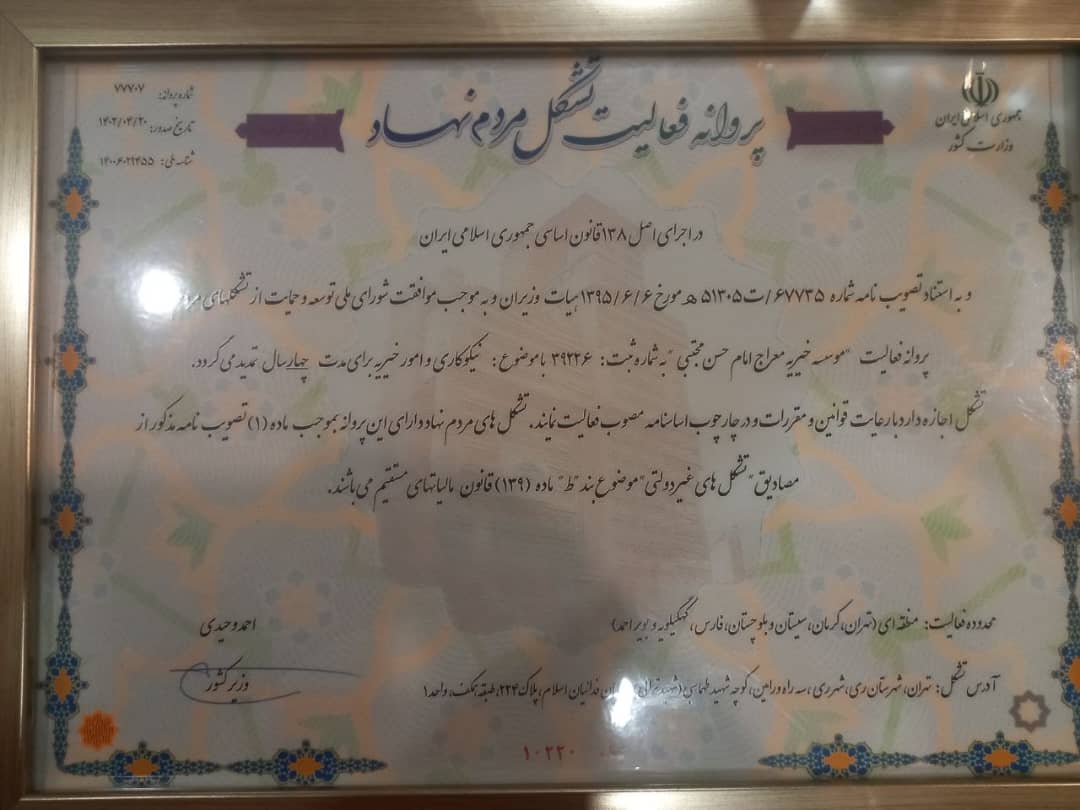 جمهوری اسلامی ایران
وزارت کشور
پروانه فعالیت تشکل مردم نهاد
شماره پروانه: ۷۷۷۰۷
تاریخ صدور: ۱۴۰۲/۰۴/۲۰
شناسه ملی: ۱۴۰۰۶۰۲۹۴۵۵
در اجرای اصل ۱۳۸ قانون اساسی جمهوری اسلامی ایران
و به استناد تصویب نامه شماره ۶۷۷۳۵/ت۵۱۳۰۵ ه مورخ ۱۳۹۵/۶/۶ هیات وزیران و به موجب موافقت شورای ملی توسعه و حمایت از تشکلهای مردم
پروانه فعالیت "موسسه خیریه معراج امام حسن مجتبی" به شماره ثبت: ۳۹۲۲۶ با موضوع: نیکوکاری و امور خیریه برای مدت چهار سال تمدید می گردد.
تشکل اجازه دارد با رعایت قوانین و مقررات و در چارچوب اساسنامه مصوب فعالیت نمایند. تشکل های مردم نهاد دارای این پروانه بموجب ماده (۱) تصویب نامه مذکور از
مصادیق "تشکل های غیردولتی" موضوع بند "ط" ماده (۱۳۹) قانون مالیاتهای مستقیم می باشند.
محدوده فعالیت: منطقه ای (تهران، کرمان، سیستان و بلوچستان، فارس، کهگیلویه و بویراحمد)
آدرس تشکل: تهران، شهرستان ری، شهرری، سه راه ورامین، کوچه شهید طهماسبی فدائیان اسلام، پلاک ۲۲۴، طبقه همکف، واحد۱
احمد وحیدی
وزیر کشور
۱۰۲۲۰